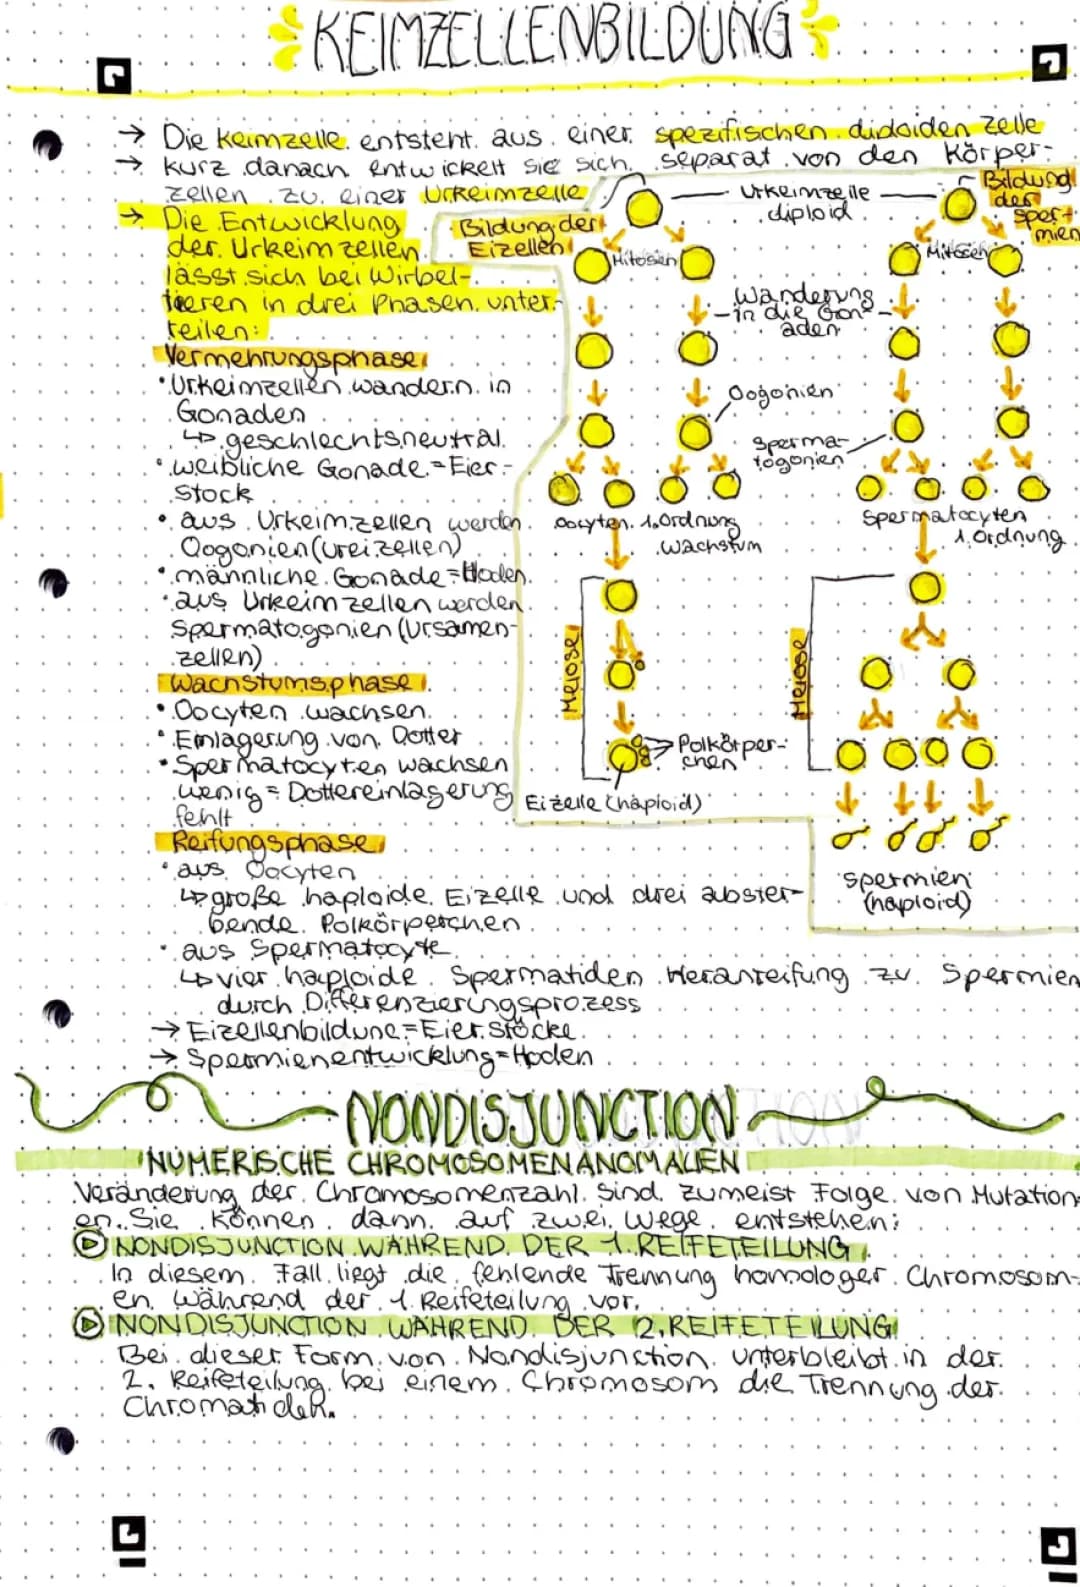 KEIMZELLENBILDUNG
→ Die Keimzelle entsteht aus einer spezifischen diploiden Zelle
→ kurz danach entwickelt sie sich separat von den Körper-
zellen zu einer Urkeimzelle
→ Die Entwicklung
der Urkeimzellen
lässt sich bei Wirbel-
tieren in drei Phasen unter-
teilen:
Vermehrungsphase
• Urkeimzellen wandern in
Gonaden
↳ geschlechtsneutral
• weibliche Gonade = Eier-
stock
• aus Urkeimzellen werden
Oogonien (Ureizellen)
• männliche Gonade = Hoden
• aus Urkeimzellen werden
Spermatogonien (Ursamen-
zellen)
Wachstumsphase
• Oocyten wachsen
• Einlagerung von Dotter
• Spermatocyten wachsen
wenig = Dottereinlagerung
fehlt
Reifungsphase
• aus Oocyten
↳ große haploide Eizelle und drei abster-
bende Polkörperchen
• aus Spermatocyte
↳ vier haploide Spermatiden Heranreifung zu Spermien
durch Differenzieringsprozess
→ Eizellenbildung = Eierstöcke
→ Spermienentwicklung = Hoden
Bildung der
Eizellen
Urkeimzelle
diploid
Bildung
der
Sper-
mien
Mitosen
Mitosen
Wanderung
in die Gon-
aden
Oogonien
Sperma-
togonien
Oocyten 1. Ordnung
Wachstum
Spermatocyten
1. Ordnung
Meiose
Meiose
Polkörper-
chen
Eizelle (haploid)
Spermien
(haploid)
NONDISJUNCTION
NUMERISCHE CHROMOSOMENANOMALIEN
Veränderung der Chromosomenzahl sind zumeist Folge von Mutation-
en. Sie können dann auf zwei Wege entstehen:
NONDISJUNCTION WÄHREND DER 1. REIFETEILUNG
In diesem Fall liegt die fehlende Trennung homologer Chromosom-
en während der 1. Reifeteilung vor.
NONDISJUNCTION WÄHREND DER 2. REIFETEILUNG
Bei dieser Form von Nondisjunction unterbleibt in der
2. Reifeteilung bei einem Chromosom die Trennung der
Chromatiden.